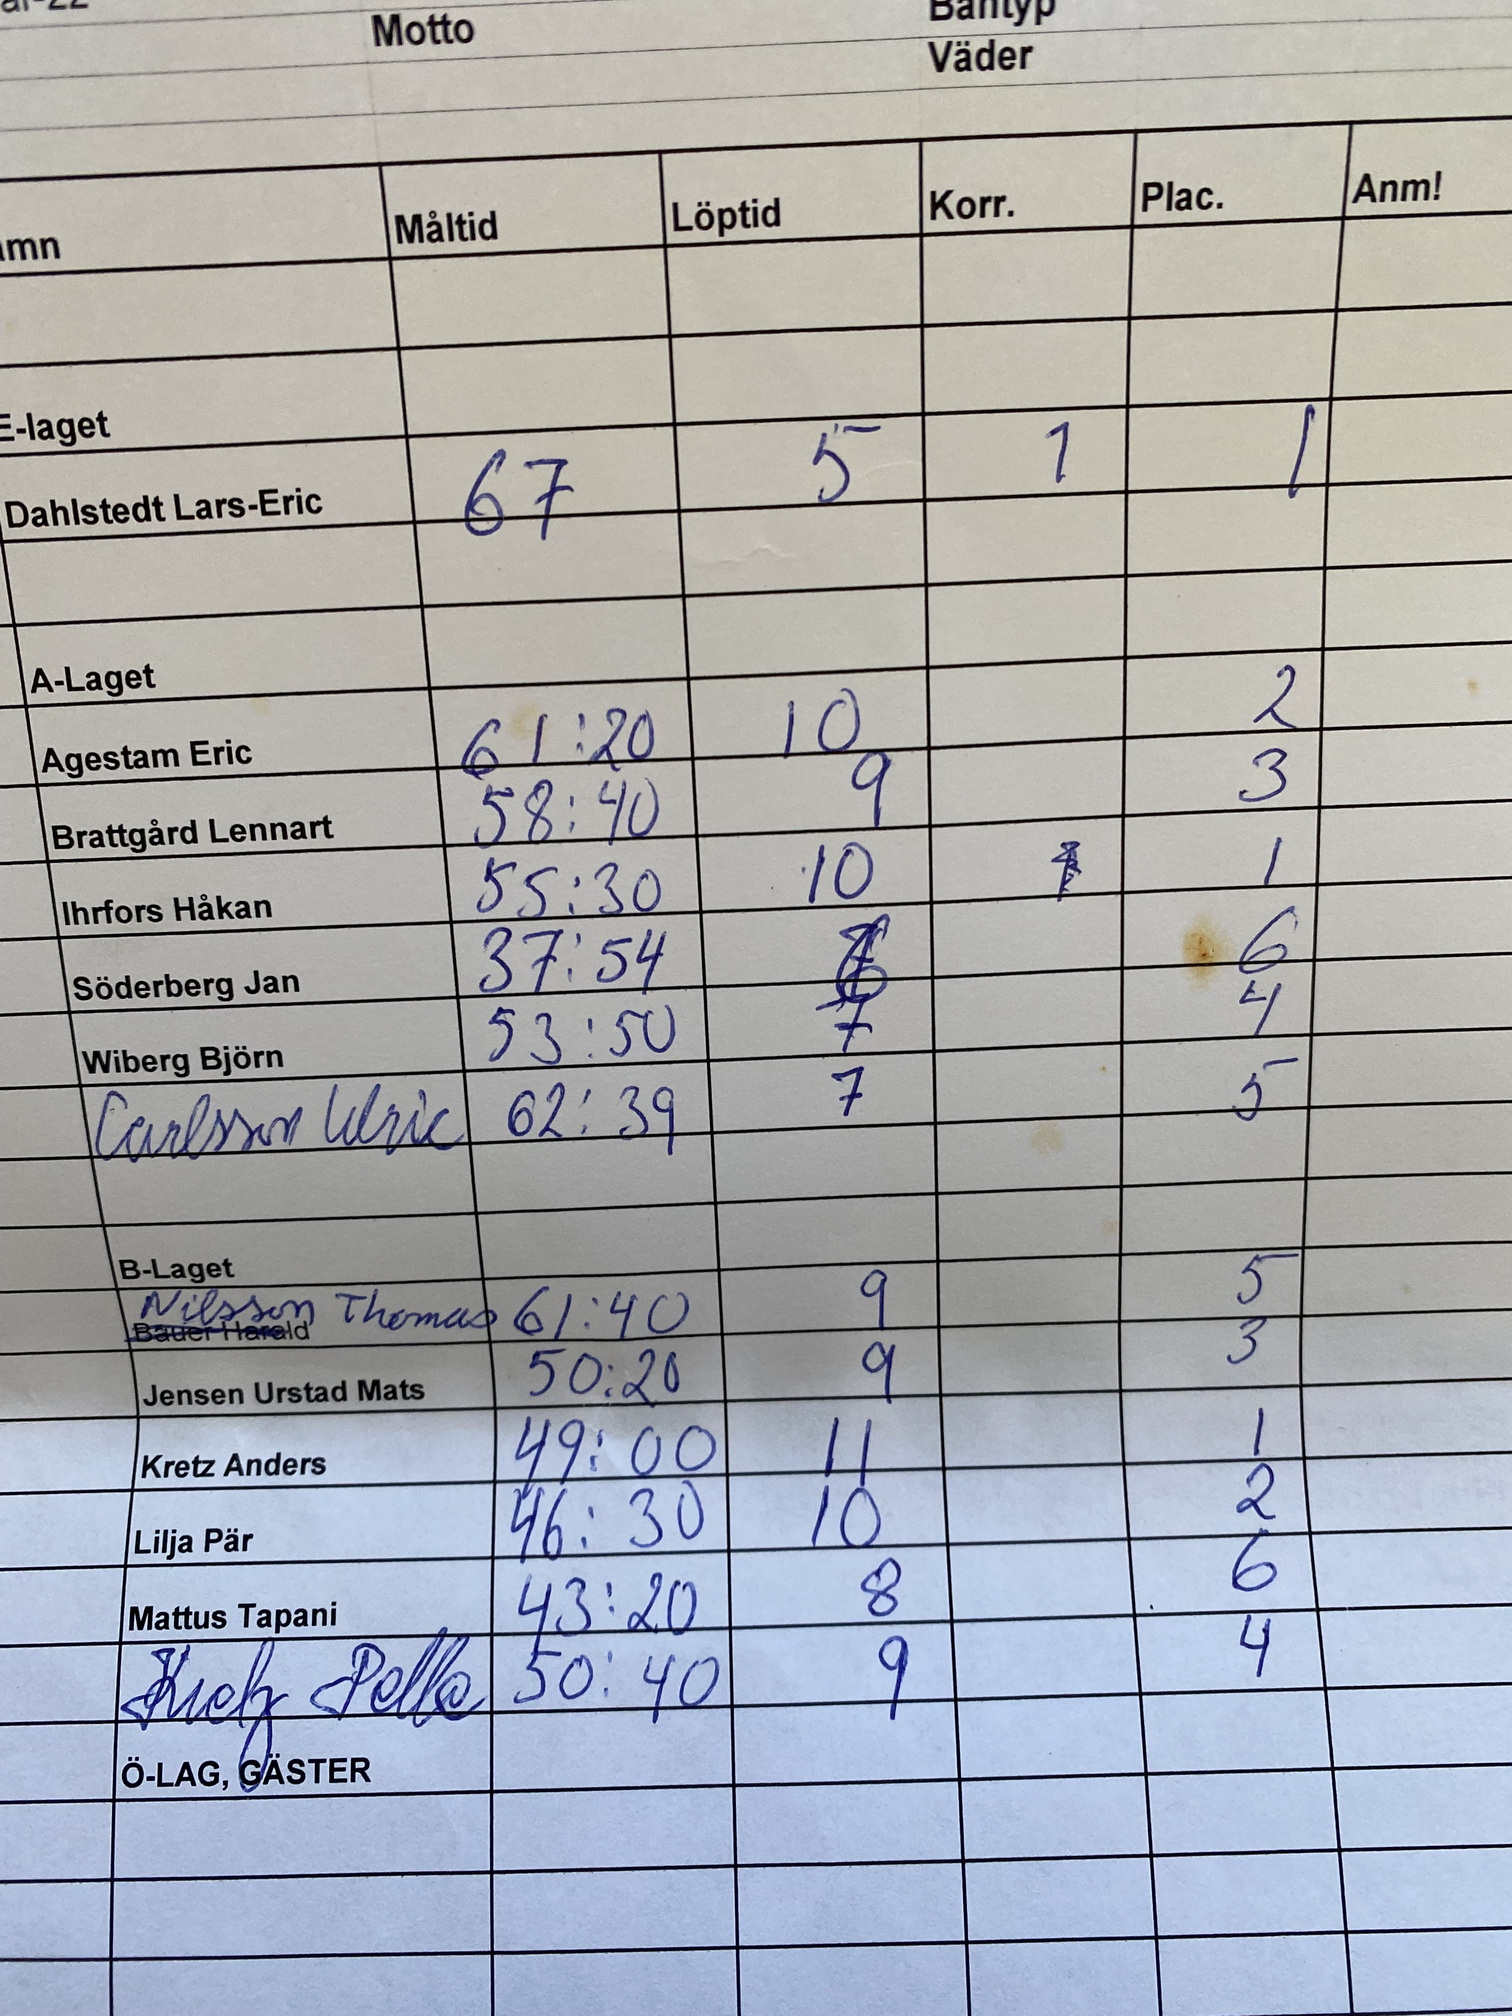 Motto Bantyp
Väder
Måltid Löptid Korr. Plac. Anm!
E-laget
Dahlstedt Lars-Eric 67 5 1 1
A-Laget
Agestam Eric 61:20 10 2
Brattgård Lennart 58:40 9 3
Ihrfors Håkan 55:30 10 1
Söderberg Jan 37:54 6
Wiberg Björn 53:50 7 4
Carlsson Ulric 62:39 7 5
B-Laget
Nilsson Thomas 61:40 9 5
Bauer Harald
Jensen Urstad Mats 50:20 9 3
Kretz Anders 49:00 11 1
Lilja Pär 46:30 10 2
Mattus Tapani 43:20 8 6
Pelle 50:40 9 4
Ö-LAG, GÄSTER